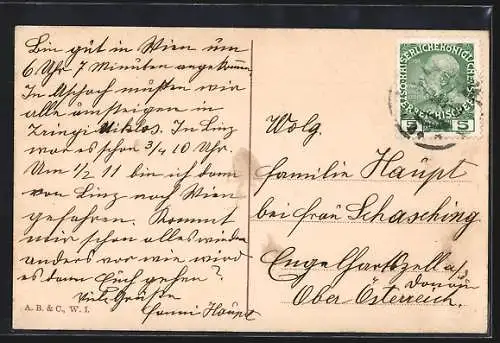 Bin gut in Wien um
6 Uhr 7 Minuten angekommen.
In Aschach mußten wir
alle aussteigen in
Niklos. In Linz
war es schon 3/4 10 Uhr.
Um 1/2 11 bin ich dann
von Linz nach Wien
gefahren. Kommt
mir schon alles wieder
anders vor wie wird
es dann Euch gehen?
Viele Grüße
Fanni Haupt
A. B. & C., W. I.
KAISERLICHE KÖNIGLICHE
5 5
Wolg.
Familie Haupt
bei Frau Schasching
Engelhartszell a/d
Donau
Ober-Österreich.